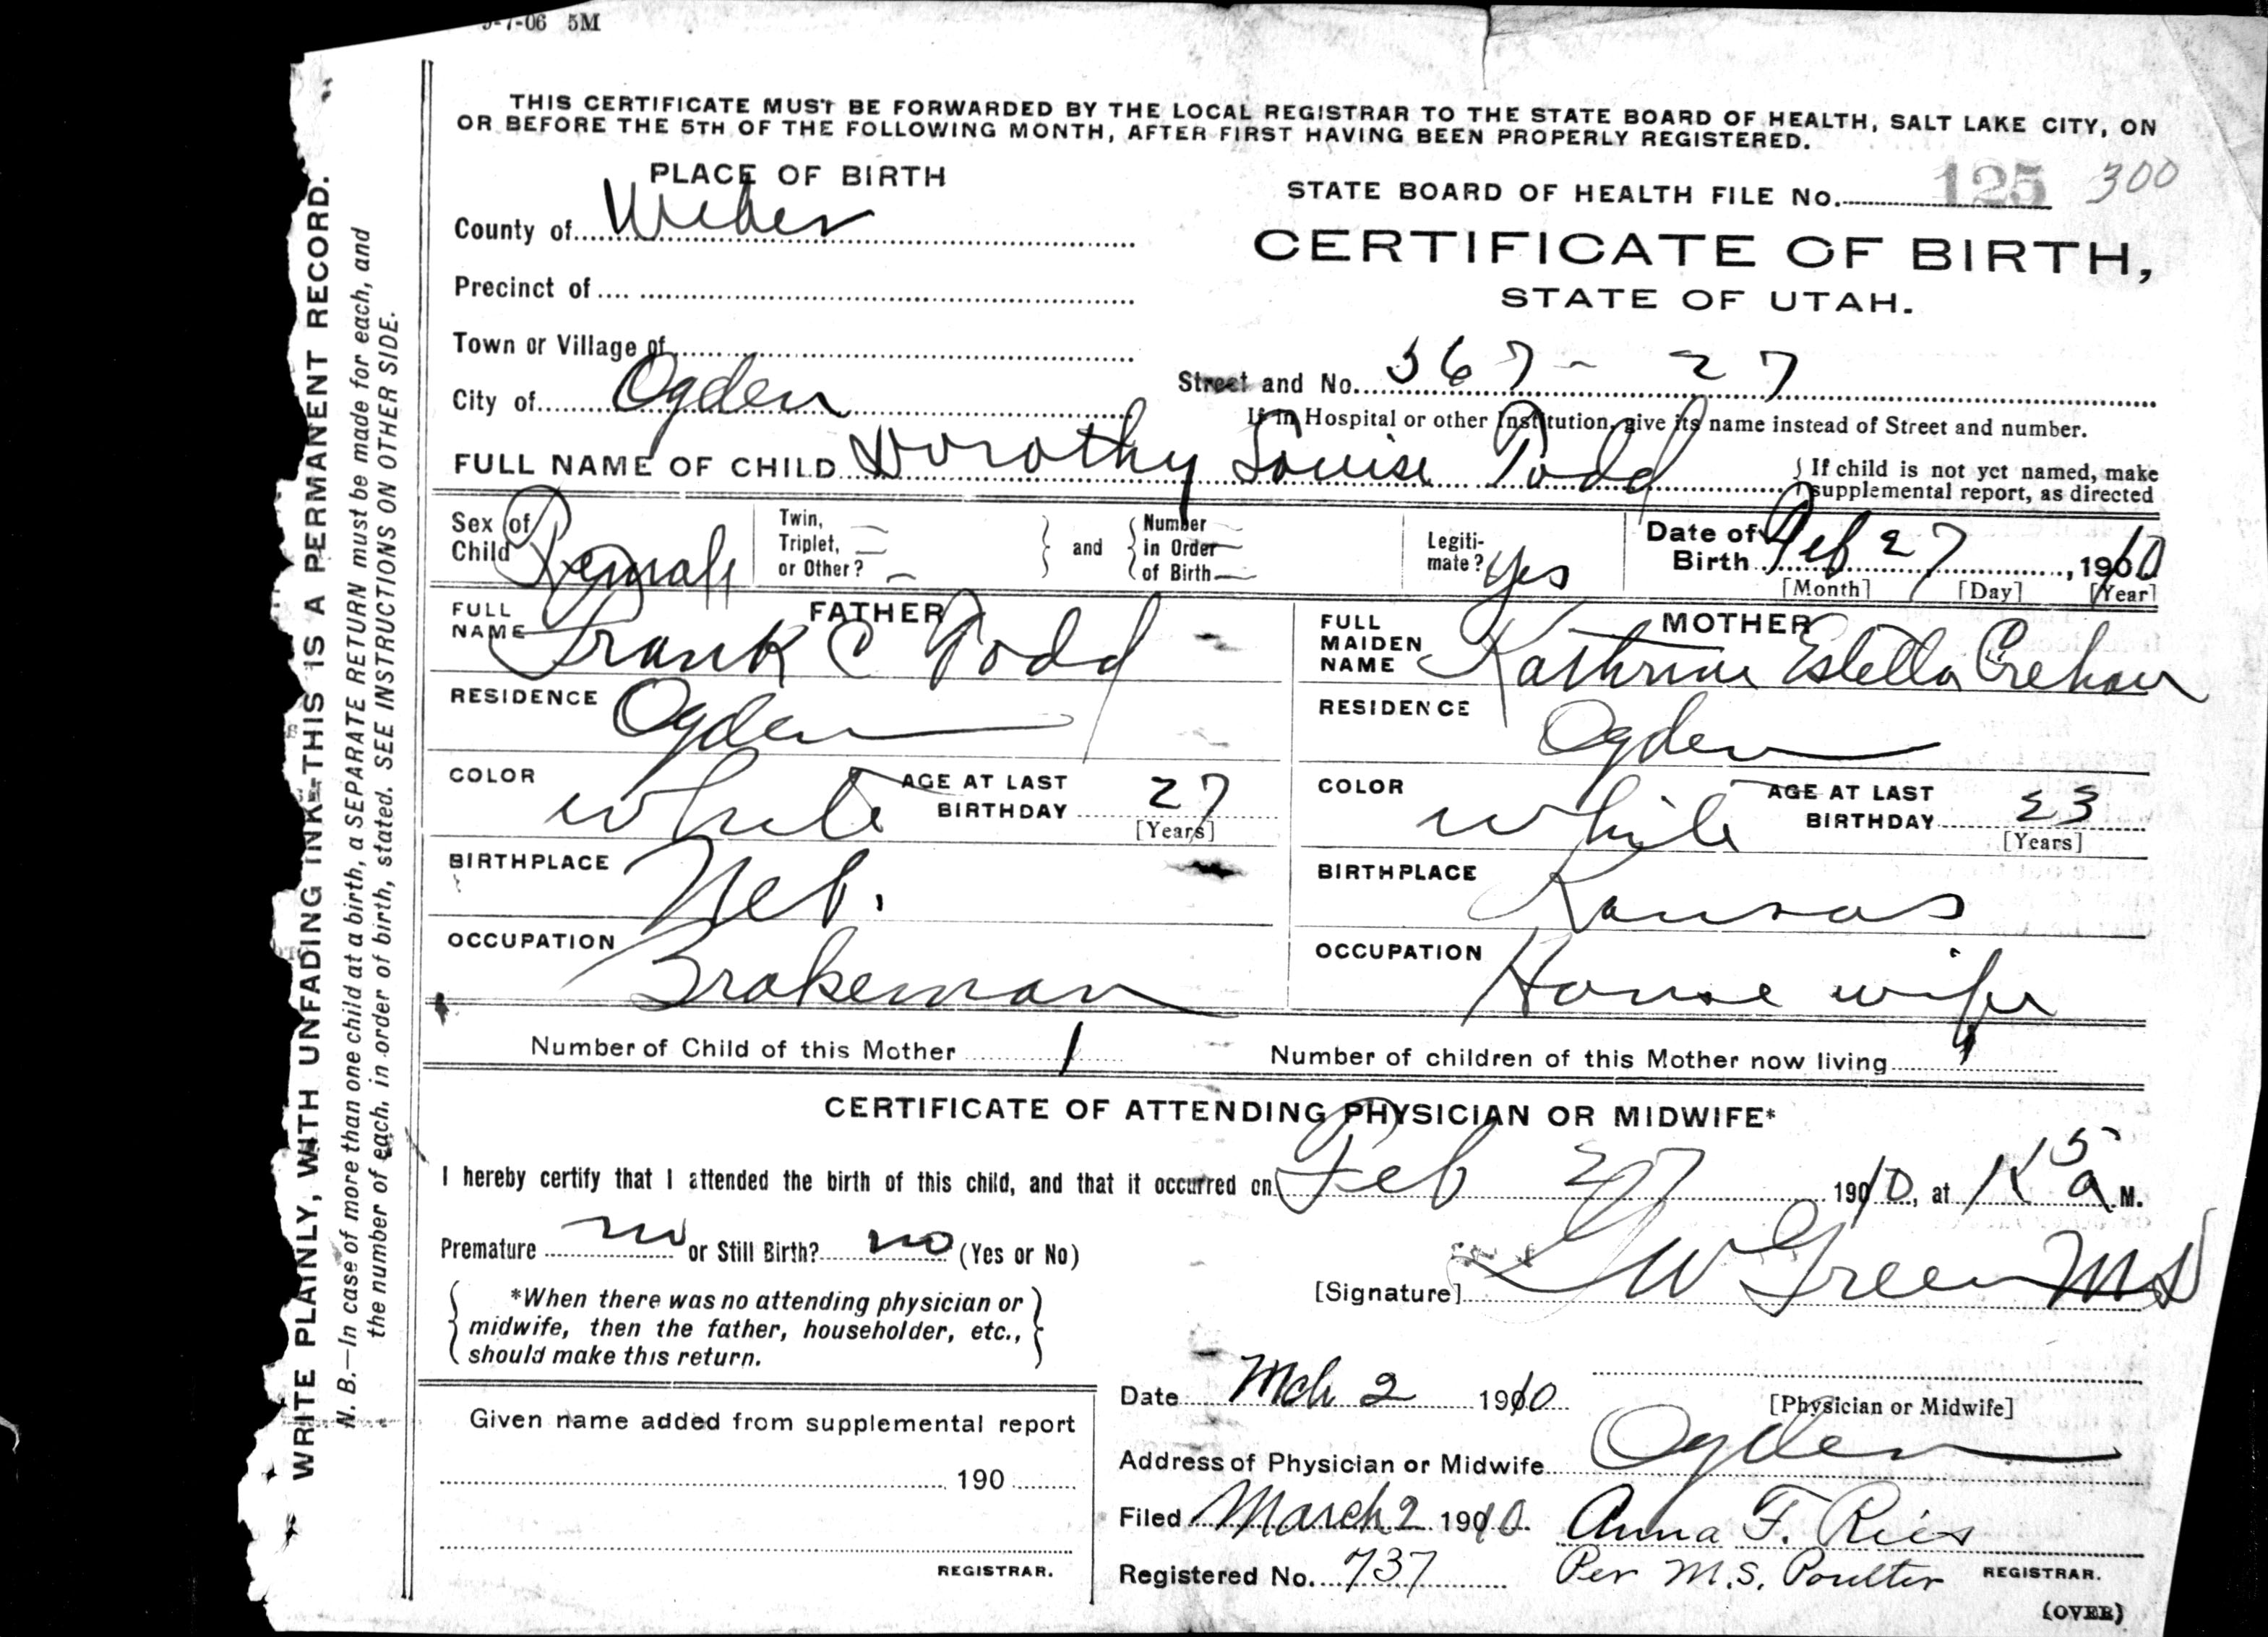 -7-06 5M
THIS CERTIFICATE MUST BE FORWARDED BY THE LOCAL REGISTRAR TO THE STATE BOARD OF HEALTH, SALT LAKE CITY, ON
OR BEFORE THE 5TH OF THE FOLLOWING MONTH, AFTER FIRST HAVING BEEN PROPERLY REGISTERED.
PLACE OF BIRTH
County of Weber
Precinct of
Town or Village of
City of Ogden
STATE BOARD OF HEALTH FILE No. 125 300
CERTIFICATE OF BIRTH,
STATE OF UTAH.
Street and No. 367 - 27
If in Hospital or other Institution, give its name instead of Street and number.
FULL NAME OF CHILD Dorothy Louise Todd
If child is not yet named, make
supplemental report, as directed
Sex of Child Female
Twin, Triplet, or Other?
and
Number in Order of Birth
Legitimate? Yes
Date of Birth Feb 27, 1910
[Month] [Day] [Year]
FATHER
FULL NAME Frank C Todd
RESIDENCE Ogden
COLOR White
AGE AT LAST BIRTHDAY 27
[Years]
BIRTHPLACE Neb.
OCCUPATION Brakeman
MOTHER
FULL MAIDEN NAME Kathrine Estella Crehan
RESIDENCE Ogden
COLOR White
AGE AT LAST BIRTHDAY 23
[Years]
BIRTHPLACE Kansas
OCCUPATION House wife
Number of Child of this Mother 1
Number of children of this Mother now living 1
CERTIFICATE OF ATTENDING PHYSICIAN OR MIDWIFE*
I hereby certify that I attended the birth of this child, and that it occurred on Feb 27 1910, at a M.
Premature no or Still Birth? no (Yes or No)
*When there was no attending physician or
midwife, then the father, householder, etc.,
should make this return.
[Signature] G W Green M D
[Physician or Midwife]
Date Mch 2 1910
Address of Physician or Midwife Ogden
Given name added from supplemental report
190
REGISTRAR.
Filed March 2 1910 Anna F. Ries
Registered No. 737 Per M.S. Poulter REGISTRAR.
(OVER)
WRITE PLAINLY, WITH UNFADING INK—THIS IS A PERMANENT RECORD.
N. B.—In case of more than one child at a birth, a SEPARATE RETURN must be made for each, and
the number of each, in order of birth, stated. SEE INSTRUCTIONS ON OTHER SIDE.